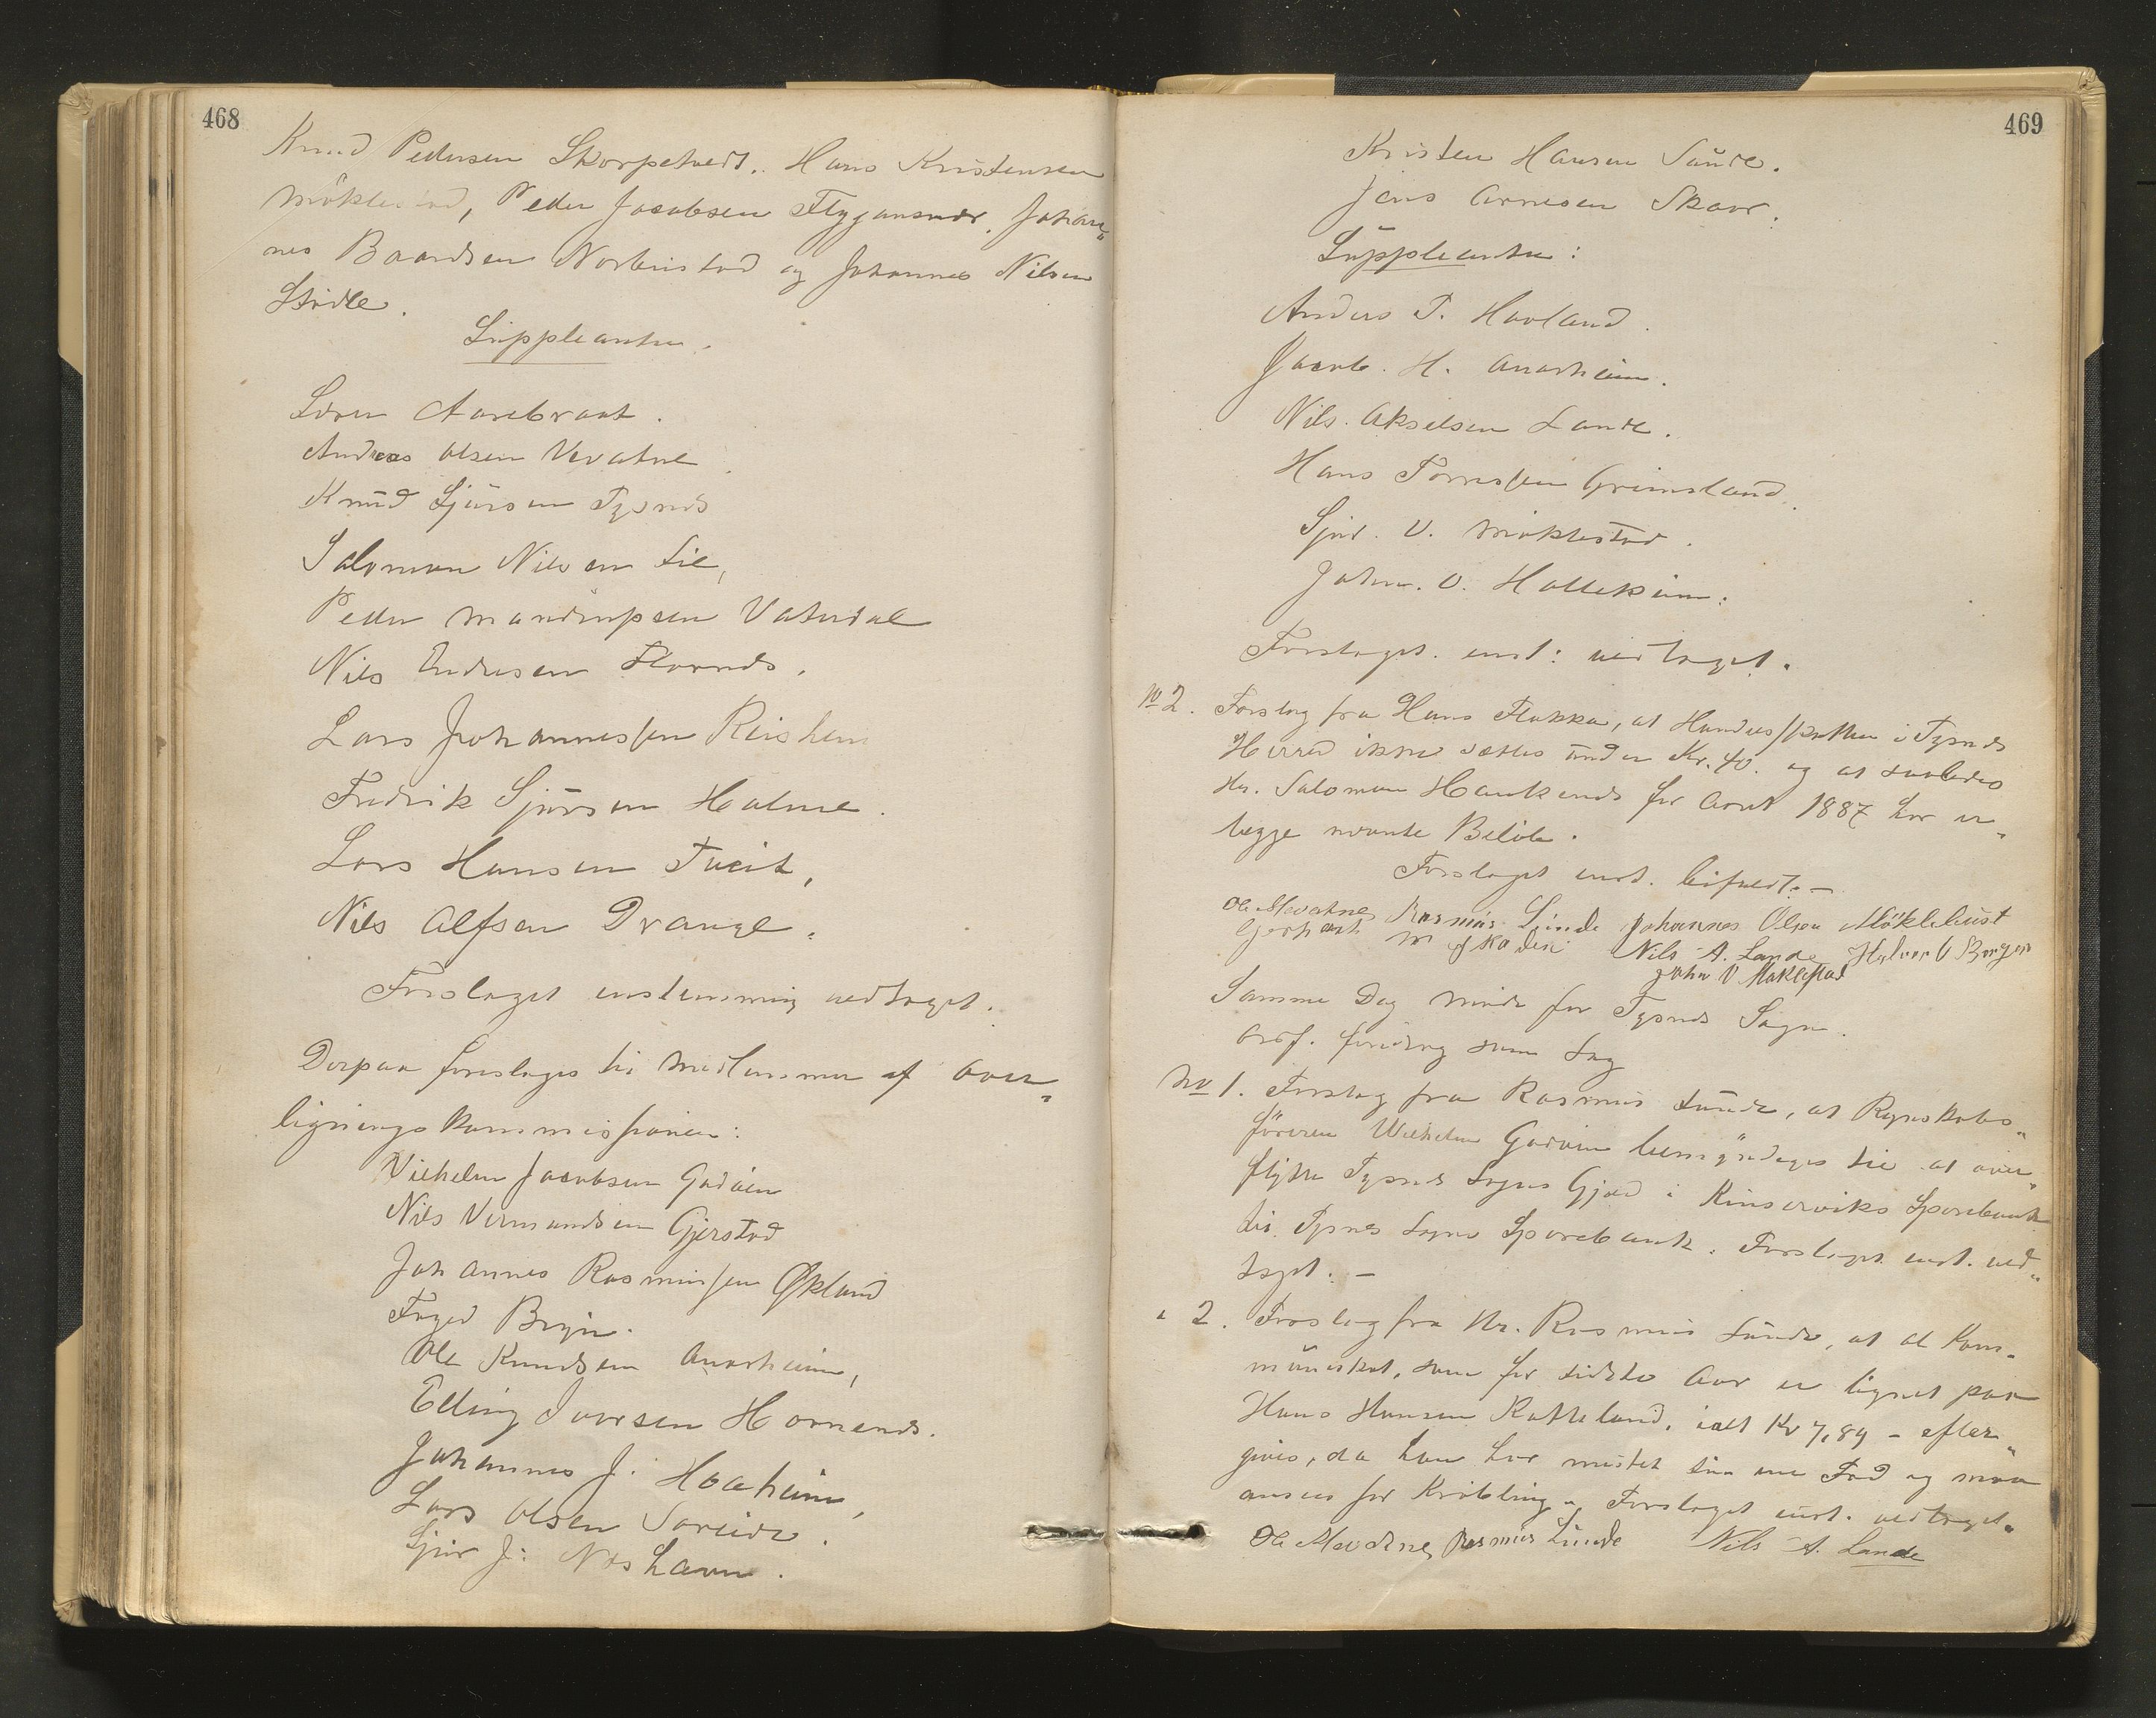 468
Knud Pedersen Skorpetvedt. Hans Kristensen
Møklestad, Peder Jacobsen Flygansvær, Johan„
nes Baardsen Norbustad og Johannes Nilsen
Stødle.
Suppleanter.
Søren Aarebraat.
Andreas Olsen Vevatne.
Knud Sjursen Tysnes
Salomon Nilsen Lie,
Peder Mandrupsen Vaterdal
Nils Endresen Flornes.
Lars Johannessen Reisheim
Fredrik Sjursen Holme.
Lars Hansen Tveit,
Nils Alfsen Drange.
Forslaget enstemmig vedtaget.
Derpaa foreslages til Medlemmer af Over„
ligningskommissionen:
Vilhelm Jacobsen Godøen
Nils Vermundsen Gjerstad
Johannes Rasmussen Økland
Foged Bryn.
Ole Knudsen Anarheim,
Elling Iversen Hornenes.
Johannes J. Hoaheim,
Lars Olsen Søreide.
Sjur J. Neshavn.
469
Kristen Hansen Sunde.
Jens Arnesen Skaar.
Suppleanter:
Anders T. Hovland.
Jacob. H. Anarheim.
Nils. Akselsen Lande.
Hans Torressen Grimsland.
Sjur. V. Møklestad.
Johan. O. Hollekim.
Forslaget. enst: vedtaget.
No 2. Forslag fra Hans Flakka, at Handelsskatten i Tysnes
Herred ikke sættes under Kr. 40. og at saaledes
Hr. Salomon Haukenes for Aaret 1887 bør er„
lægge nævnte Beløb.
Forslaget enst. bifaldt. —
Ole Mevatne Rasmus Sunde Johannes Olsen Møklebust
Gerhart M Nils A. Lande Halvor O Berge
John V Møklestad
Samme Dag Møde for Tysnes Sogn.
Ordf. foredrog som Sag
No 1. Forslag fra Rasmus Sunde, at Regnskabs„
føreren Wilhelm Godøen bemyndiges til at over„
flytte Tysnes Sogns Gjæld i Kinserviks Sparebank
til Tysnes Sogns Sparebank. Forslaget enst. ved„
taget. —
" 2. Forslag fra Hr. Rasmus Sunde, at al Kom-
muneskat, som for sidste Aar er lignet paa
Hans Hansen Katteland, ialt Kr 7,89 - efter„
gives, da han har mistet sin ene Fod og maa
ansees for Krøbling. Forslaget enst. vedtaget.
Ole Mevatne Rasmus Sunde Nils A. Lande